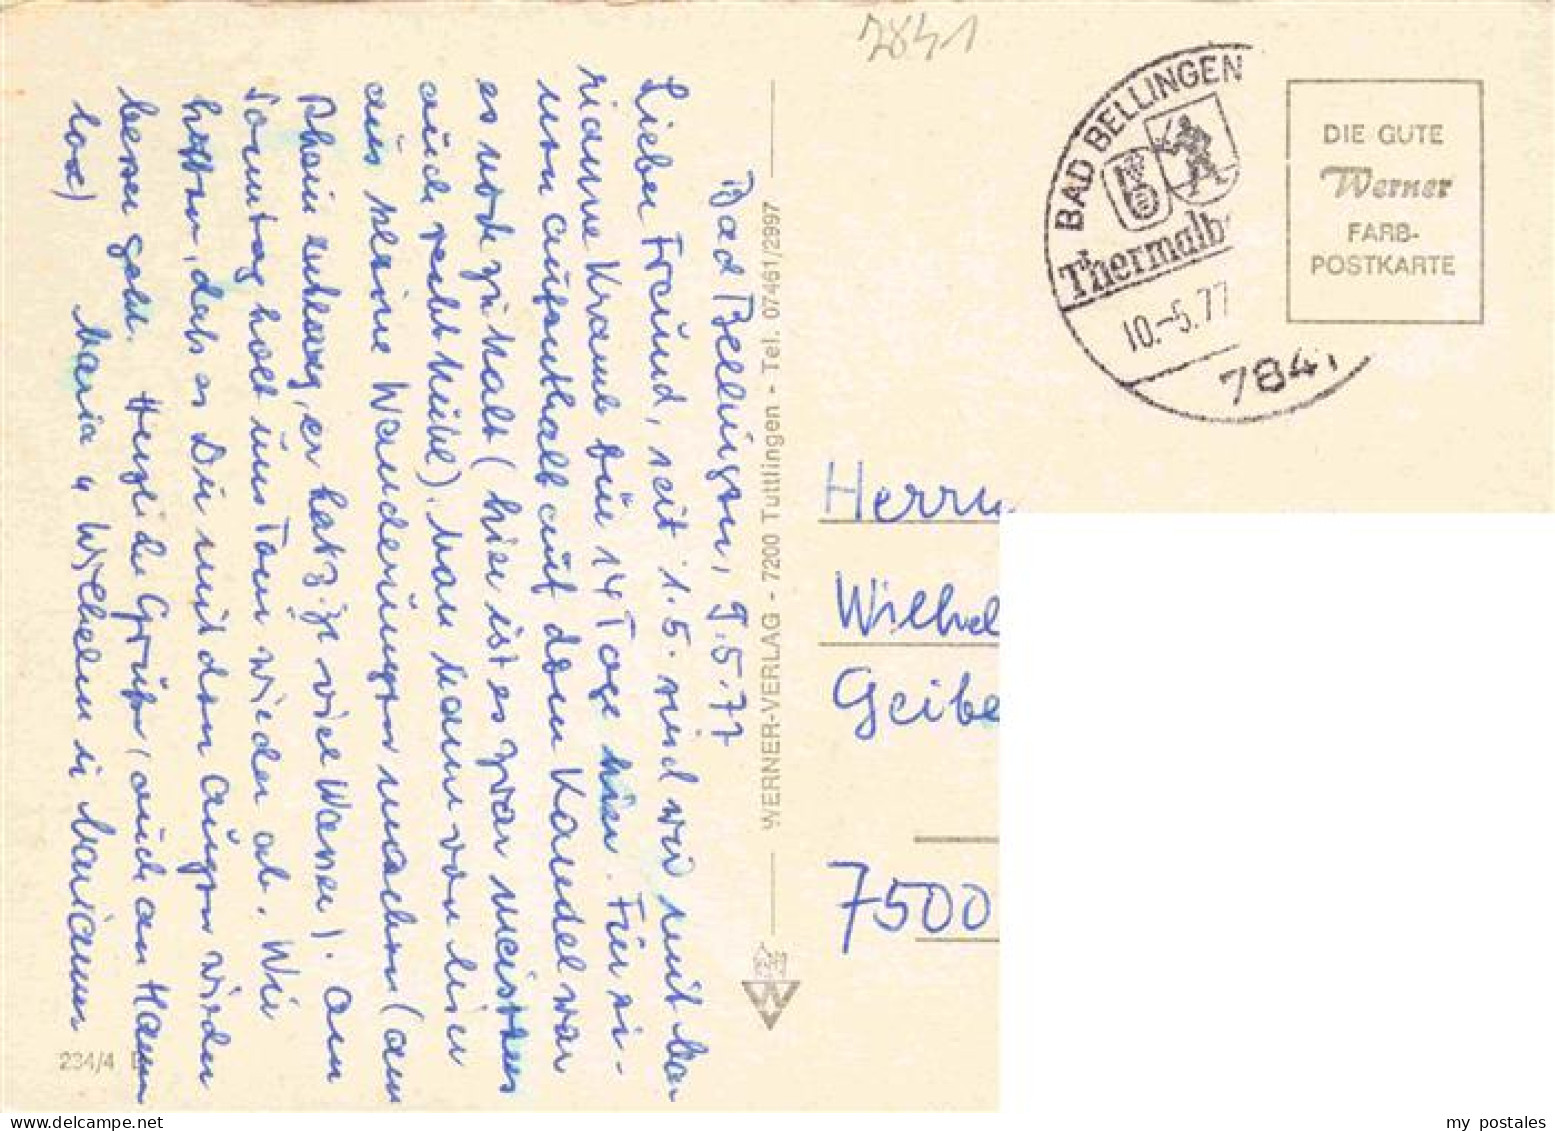 Bad Bellingen, 9.5.77
Lieber Freund, seit 1.5. sind wir mit Ma-
rianne Kraus für 14 Tage hier. Für ei-
nen Aufenthalt auf dem Kandel war
es noch zu kalt (hier ist es zwar meistens
auch recht kühl). Man kann von hier
aus kleine Wanderungen machen (am
Rhein entlang, er hat z. Zt. viel Wasser). Am
Sonntag holt uns Toni wieder ab. Wir
hoffen, daß es Dir mit den Augen wieder
besser geht. Herzliche Grüße, auch an Hann
lore) Maria u Wilhelm u Marianne
WERNER-VERLAG - 7200 Tuttlingen - Tel. 07461/2997
234/4
2841
BAD BELLINGEN
Thermalb
10.-5.77
7841
DIE GUTE
Werner
FARB-
POSTKARTE
Herrn
Wilhel
Geibe
7500
my postales